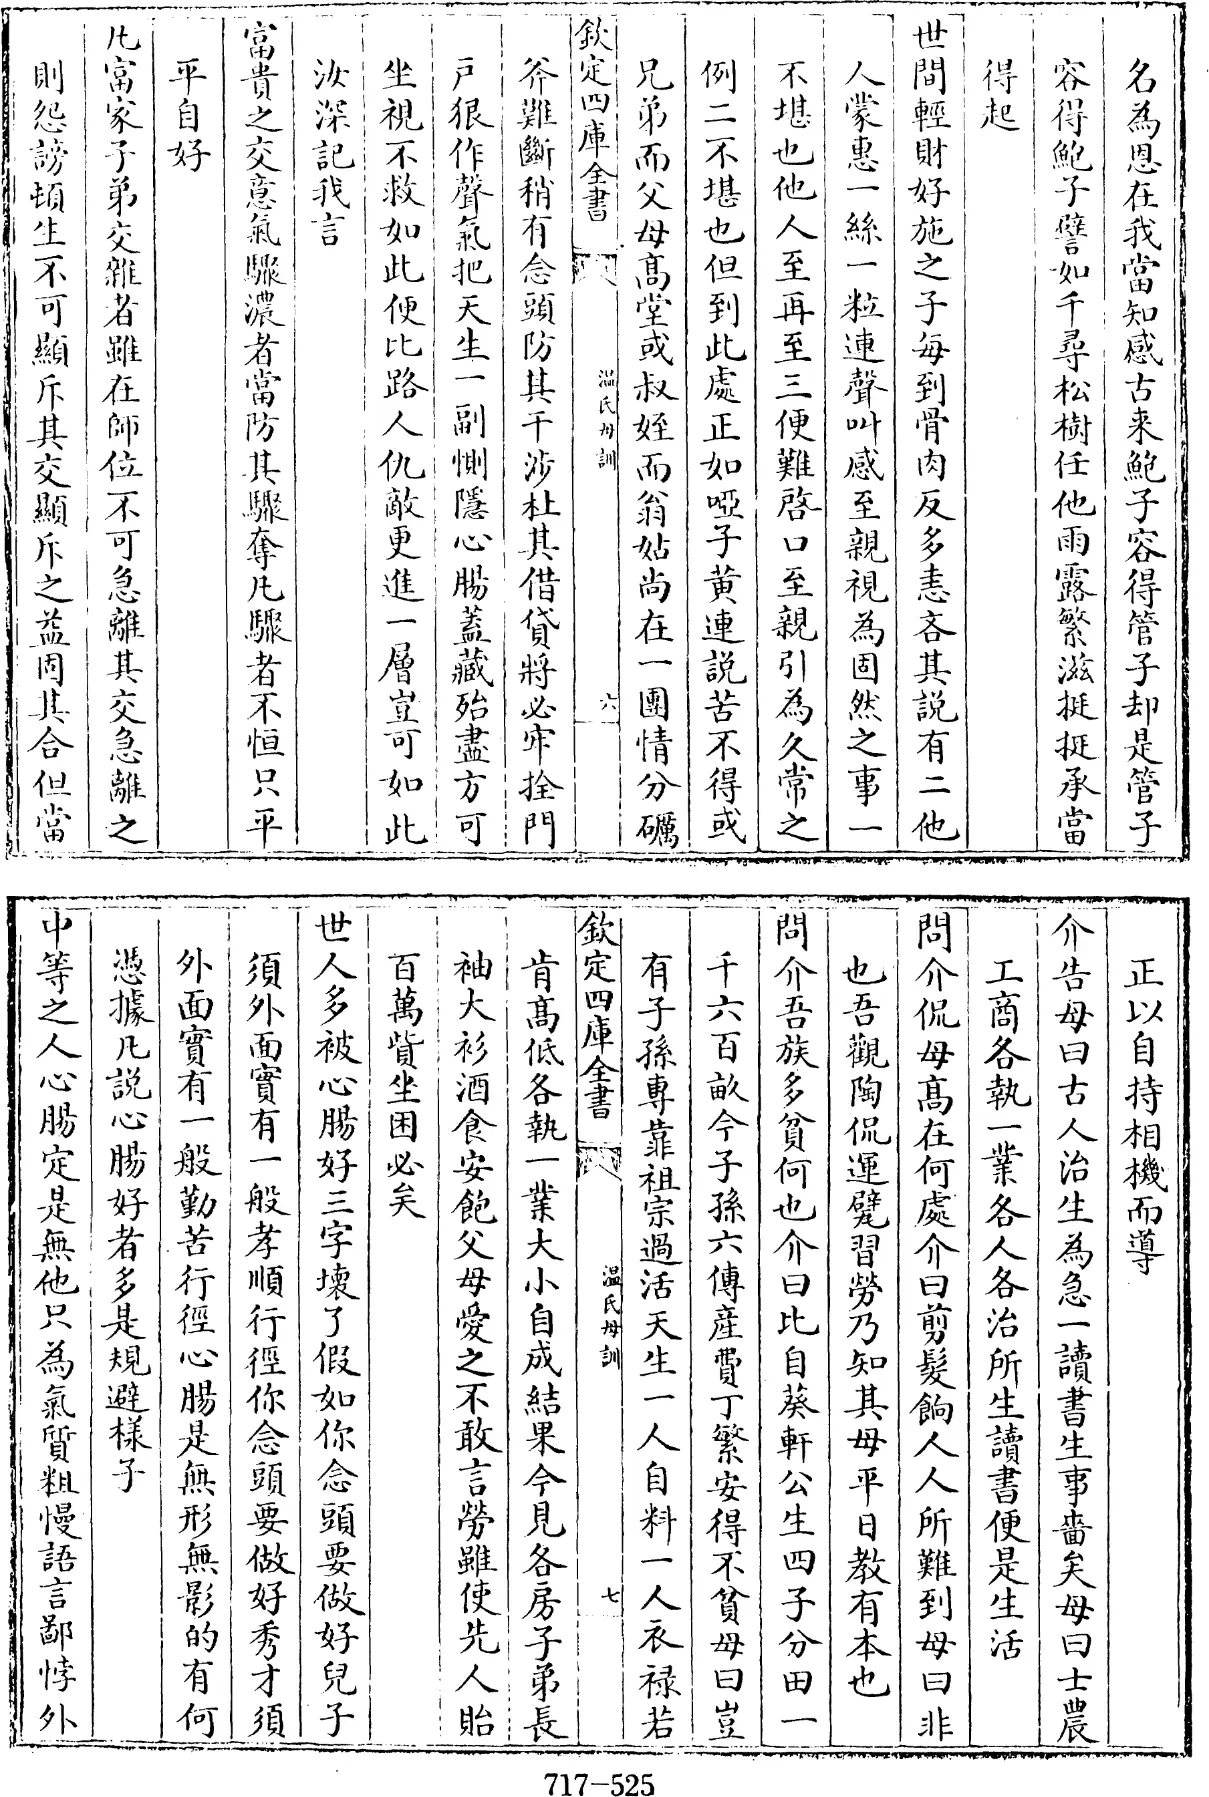 名為恩在我當知感古来鮑子容得管子却是管子
容得鮑子譬如千尋松樹任他雨露繁滋挺挺承當
得起
世間輕財好施之子每到骨肉反多恚吝其說有二他
人蒙惠一絲一粒連聲叫感至親視為固然之事一
不堪也他人至再至三便難啓口至親引為久常之
例二不堪也但到此處正如啞子黄連說苦不得或
兄弟而父母髙堂或叔姪而翁姑尚在一團情分礪
欽定四庫全書 溫氏母訓 六
斧難斷稍有念頭防其干涉杜其借貸將必牢拴門
戸狠作聲氣把天生一副惻隱心腸蓋藏殆盡方可
坐視不救如此便比路人仇敵更進一層豈可如此
汝深記我言
富貴之交意氣驟濃者當防其驟奪凡驟者不恒只平
平自好
凡富家子弟交雜者雖在師位不可急離其交急離之
則怨謗頓生不可顯斥其交顯斥之益固其合但當
正以自持相機而導
介告母曰古人治生為急一讀書生事嗇矣母曰士農
工商各執一業各人各治所生讀書便是生活
問介侃母髙在何處介曰剪髮餉人人所難到母曰非
也吾觀陶侃運甓習勞乃知其母平日教有本也
問介吾族多貧何也介曰比自葵軒公生四子分田一
千六百畝今子孫六傳産費丁繁安得不貧母曰豈
有子孫專靠祖宗過活天生一人自料一人衣禄若
欽定四庫全書 溫氏母訓 七
肯髙低各執一業大小自成結果今見各房子弟長
袖大衫酒食安飽父母愛之不敢言勞雖使先人貽
百萬貲坐困必矣
世人多被心腸好三字壞了假如你念頭要做好兒子
須外面實有一般孝順行徑你念頭要做好秀才須
外面實有一般勤苦行徑心腸是無形無影的有何
憑據凡說心腸好者多是規避樣子
中等之人心腸定是無他只為氣質粗慢語言鄙悖外
717-525